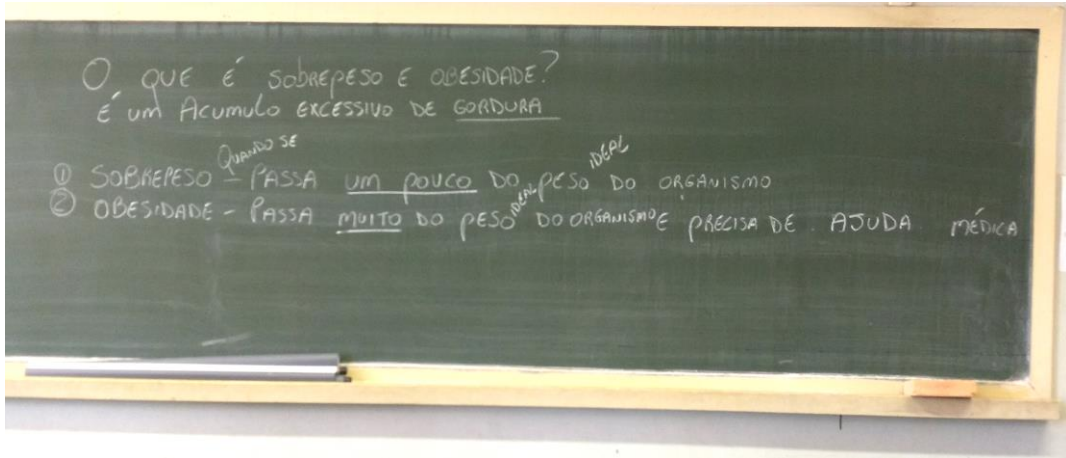 O QUE É SOBREPESO E OBESIDADE?
É UM ACUMULO EXCESSIVO DE GORDURA
① SOBREPESO - QUANDO SE PASSA UM POUCO DO PESO IDEAL DO ORGANISMO
② OBESIDADE - PASSA MUITO DO PESO IDEAL DO ORGANISMO E PRECISA DE AJUDA MÉDICA